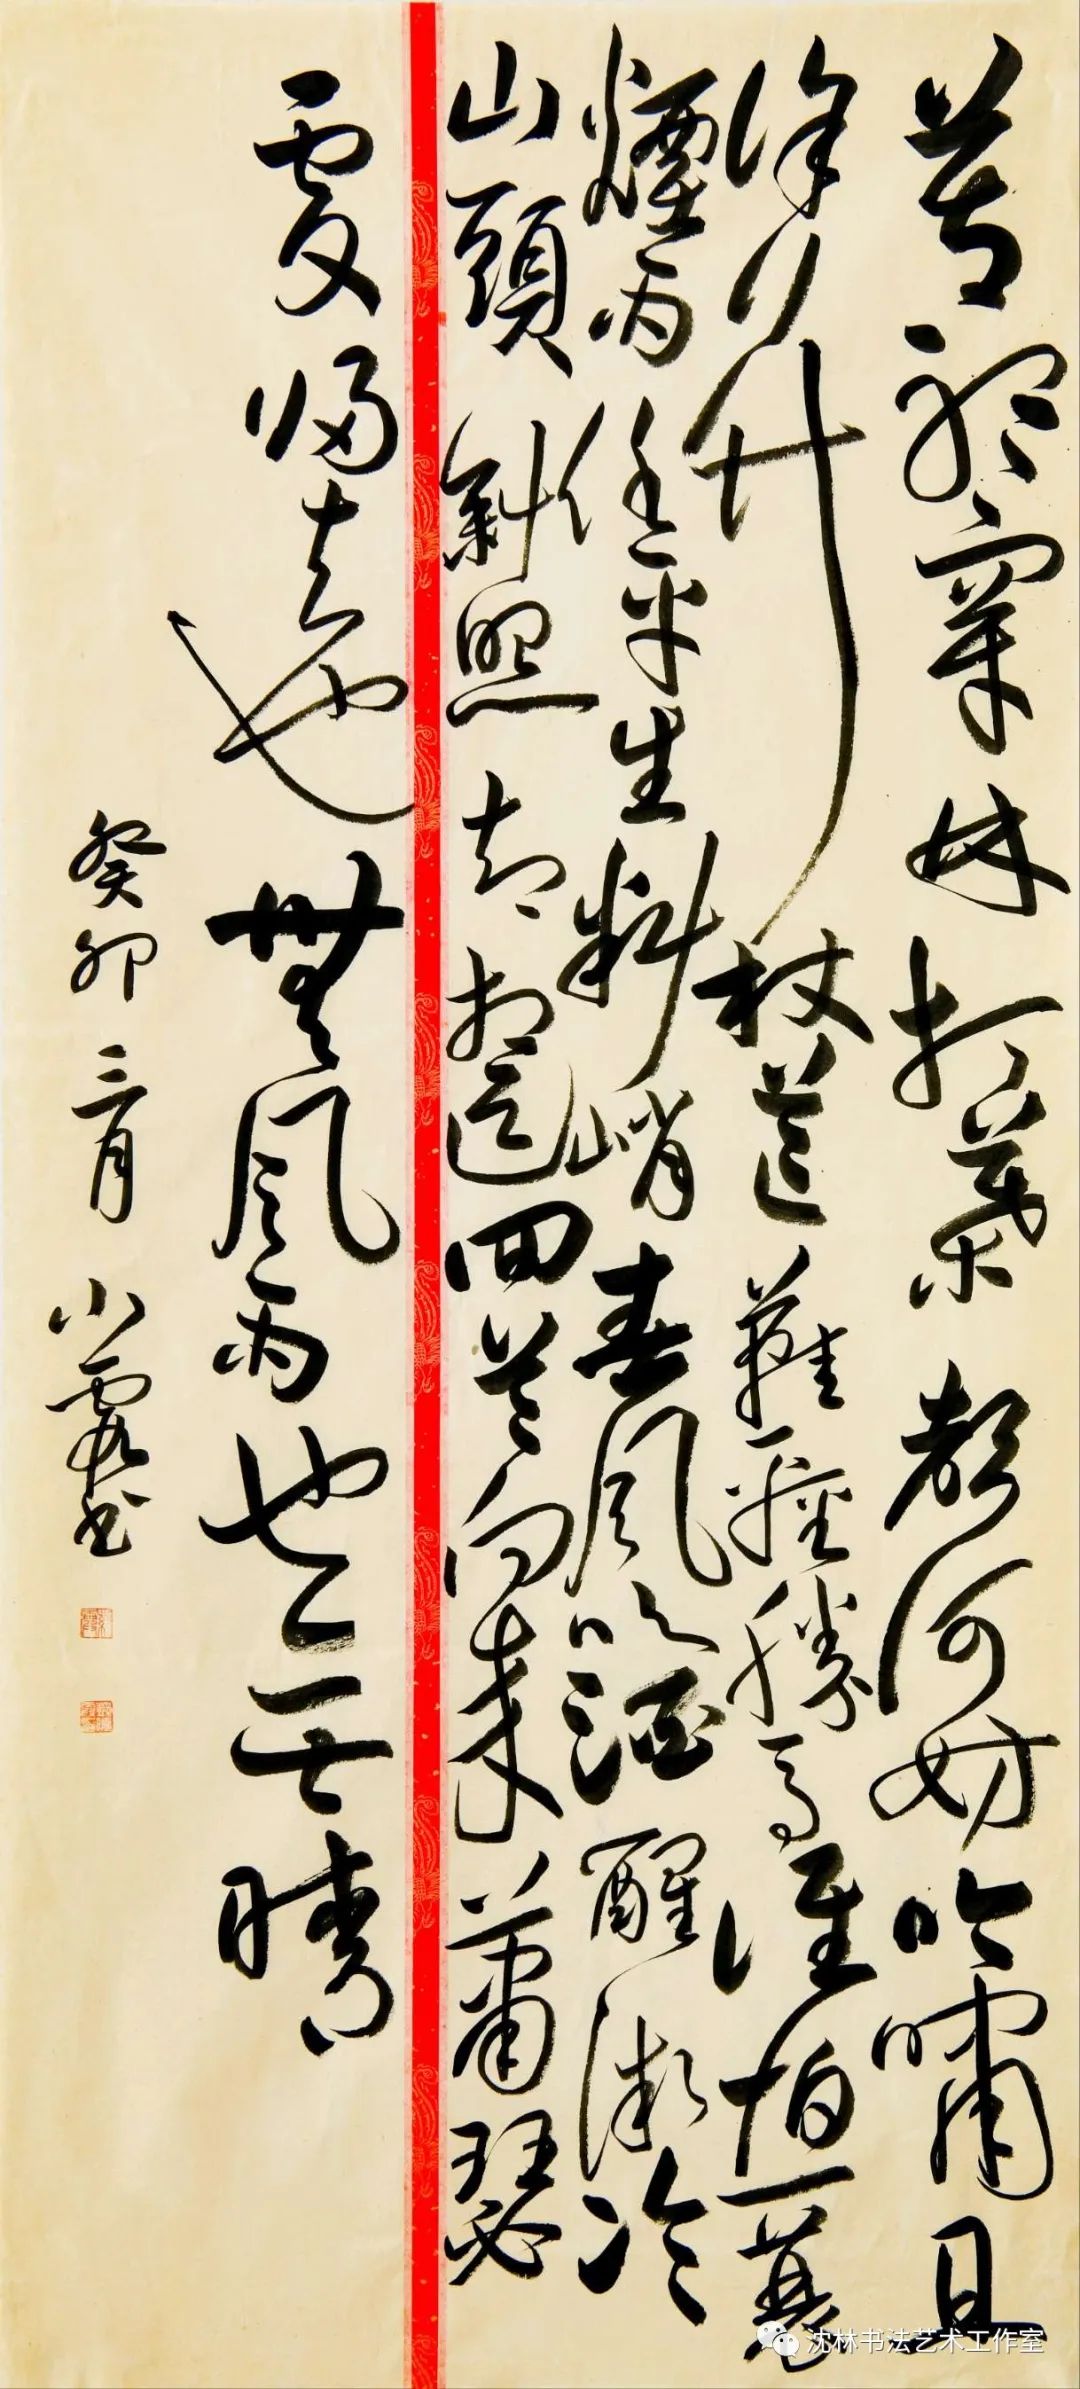 莫聽穿林打葉聲何妨吟嘯且
徐行竹杖芒鞋輕勝馬誰怕一蓑
煙雨任平生料峭春風吹酒醒微冷
山頭斜照却相迎回首向來蕭瑟
處歸去也無風雨也无晴
癸卯三月小霞书
沈林书法艺术工作室